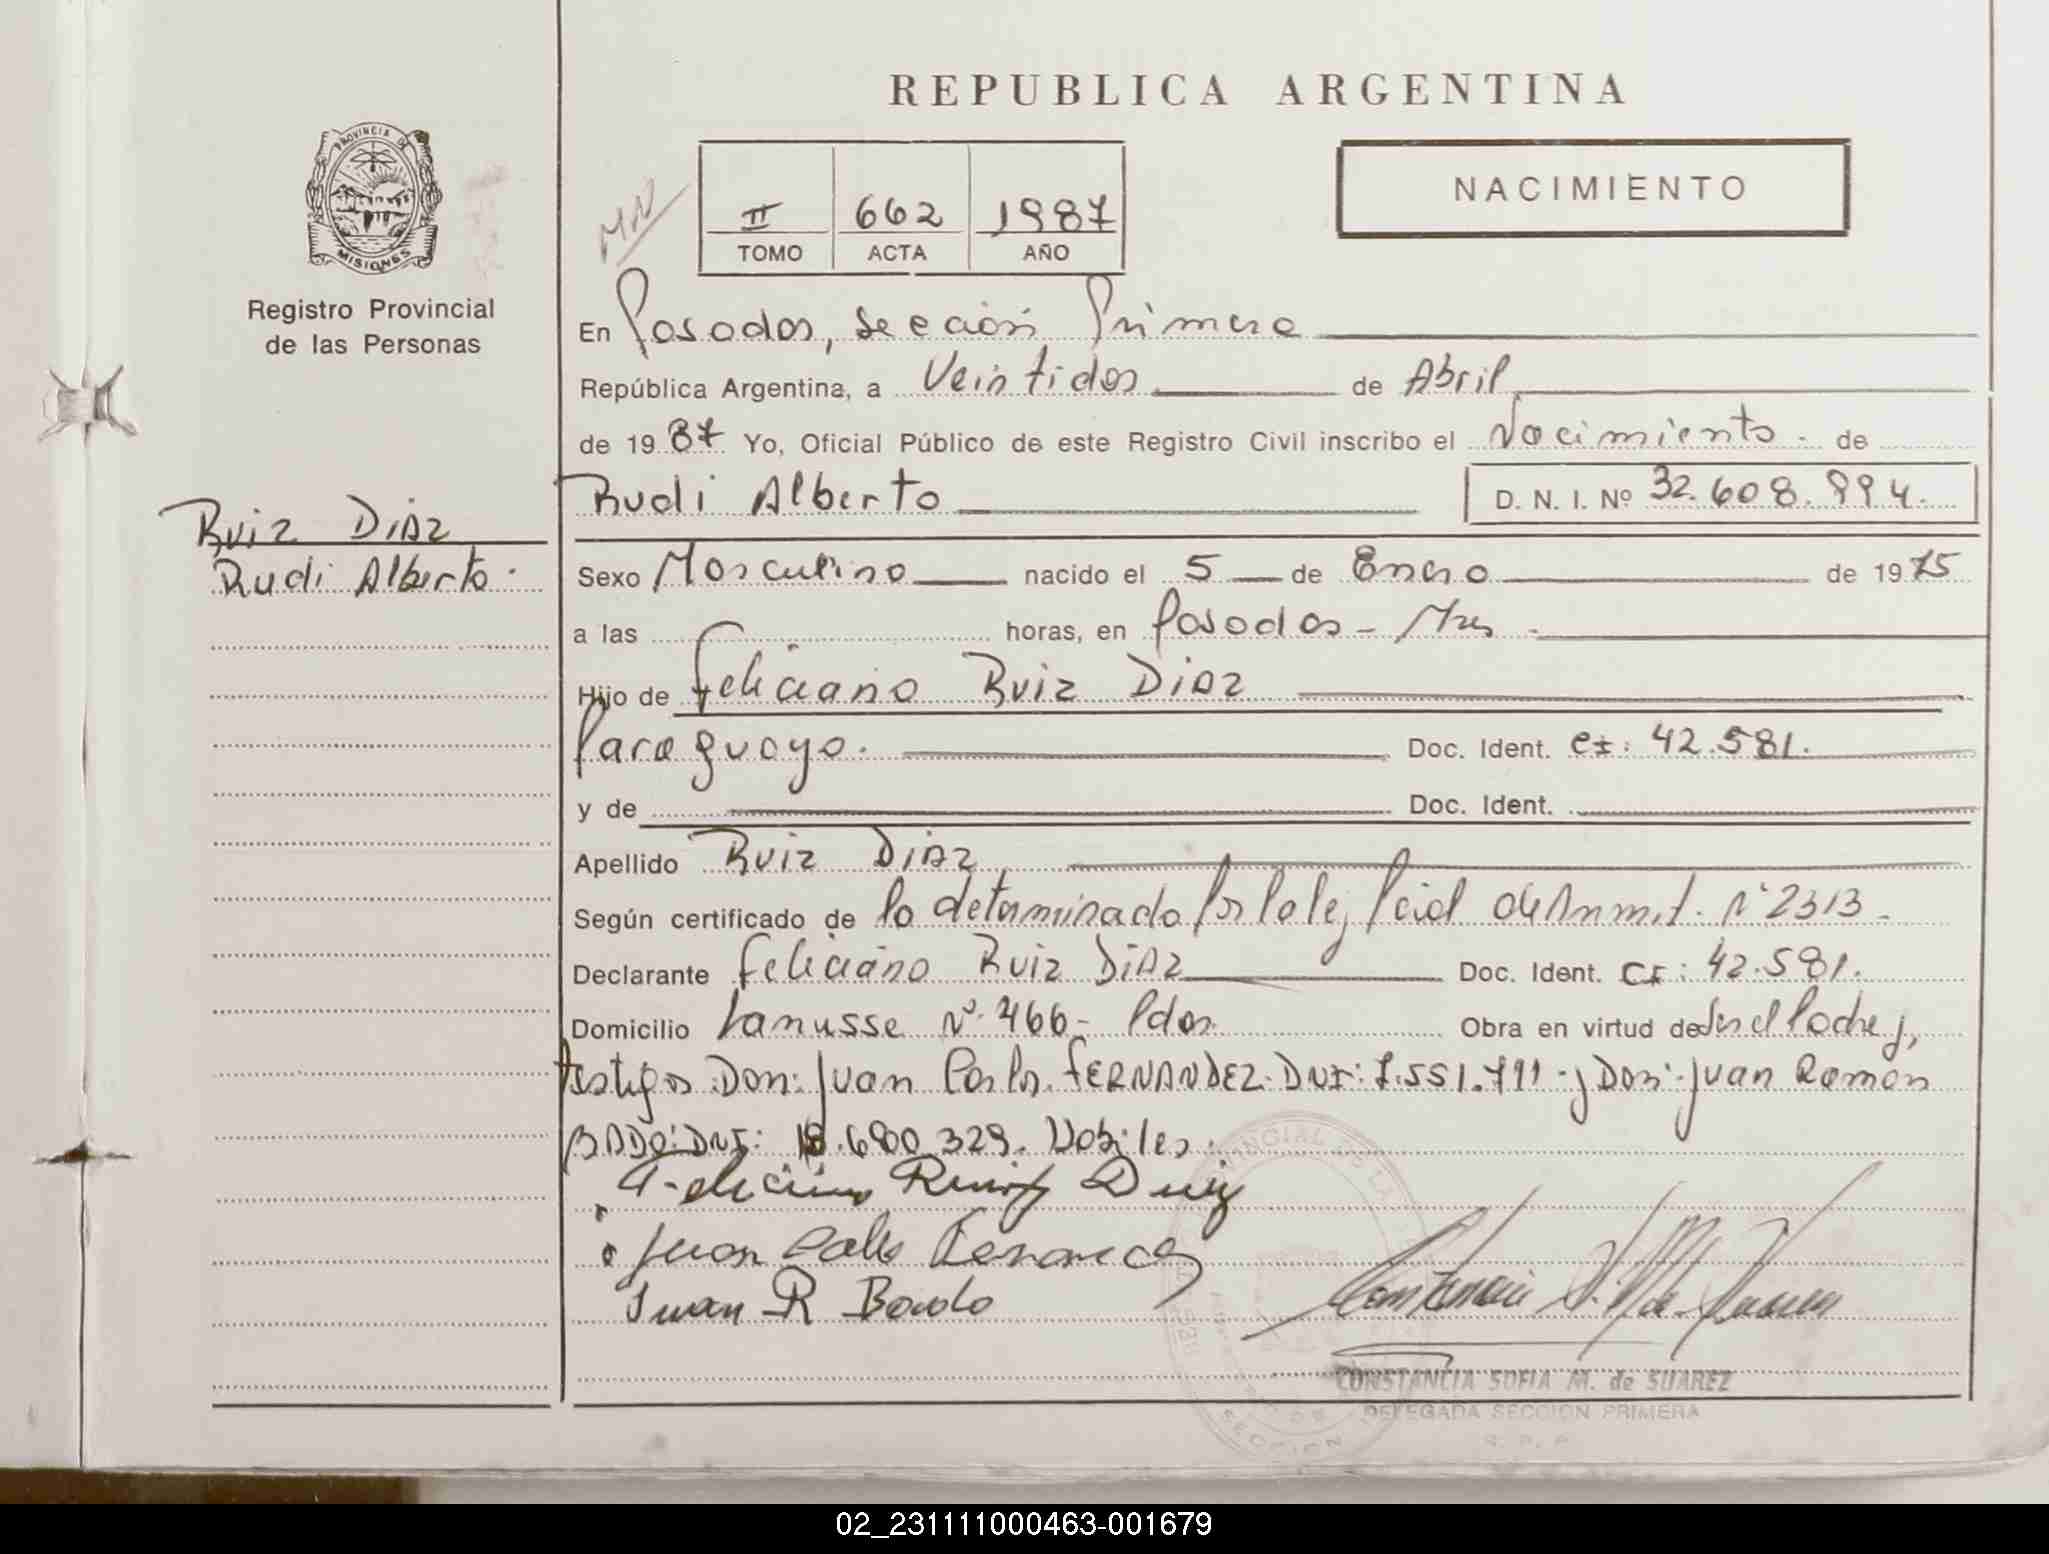 REPUBLICA ARGENTINA
PROVINCIA DE
MISIONES
Registro Provincial
de las Personas
II 662 1987
TOMO ACTA AÑO
NACIMIENTO
En Posadas, Sección Primera
República Argentina, a Veintidos de Abril
de 1987 Yo, Oficial Público de este Registro Civil inscribo el Nacimiento de
Rudi Alberto D. N. I. Nº 32.608.994.
Ruiz DiAz
Rudi Alberto.
Sexo Masculino nacido el 5 de Enero de 1975
a las horas, en Posadas - Mnes
Hijo de Feliciano Ruiz DiAz
Paraguayo. Doc. Ident. CI: 42.581.
y de Doc. Ident.
Apellido Ruiz DiAz
Según certificado de lo determinado por la ley Pcial de Amnist. Nº 2313 -
Declarante Feliciano Ruiz DiAz Doc. Ident. CI: 42.581.
Domicilio Lanusse Nº 466 - Pdas. Obra en virtud de Ser el Padre y,
testigos Don: Juan Carlos FERNANDEZ. DNI: 7.551.711 - y Don: Juan Ramón
BADO: DNI: 18.600.329. Habiles.
Feliciano Ruiz Diaz
Juan Carlos Fernandez
Juan R Bado
CONSTANCIA SOFIA M. de SUAREZ
DELEGADA SECCION PRIMERA
R. P. P.
02_231111000463-001679